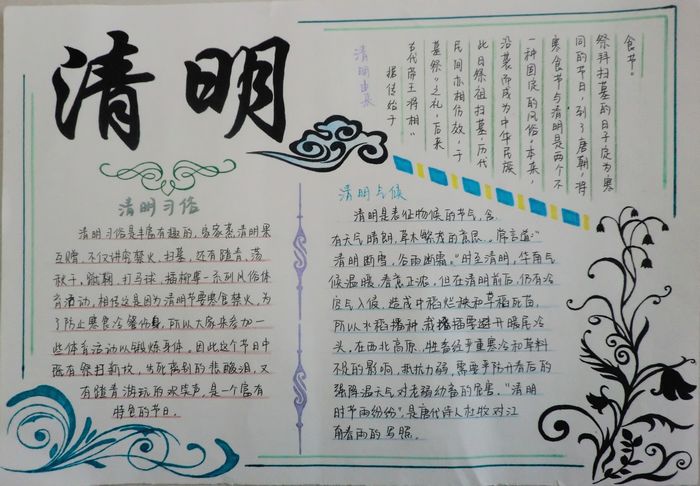 清明
清明由来
据传始于
古代帝王将相“
墓祭”之礼,后来
民间亦相仿效,于
此日祭祖扫墓,历代
沿袭而成为中华民族
一种固定的风俗。本来,
寒食节与清明是两个不
同的节日,到了唐朝,将
祭拜扫墓的日子定为寒
食节。
清明习俗
清明习俗是丰富有趣的,客家素清明果
互赠,不仅讲究禁火、扫墓,还有踏青、荡
秋千、蹴鞠、打马球、插柳等一系列风俗体
育活动。相传这是因为清明节要寒食禁火,为
了防止寒食冷餐伤身,所以大家来参加一
些体育活动以锻炼身体。因此这个节日中
既有祭扫新坟,生死离别的悲酸泪,又
有踏青游玩的欢笑声,是一个富有
特色的节日。
清明气候
清明是表征物候的节气,含
有天气晴朗,草木繁茂的意思。常言道:“
清明断雪,谷雨断霜。”时至清明,华南气
候温暖,春意正浓。但在清明前后,仍有冷
空气入侵,造成中稻烂秧和早稻死苗,
所以水稻播种、栽插要避开暖尾冷
头。在西北高原,牲畜经严重寒冷和草料
不足的影响,抵抗力弱,需要严防开春后的
强降温天气对老弱幼畜的危害。“清明
时节雨纷纷”,是唐代诗人杜牧对江
南春雨的写照.